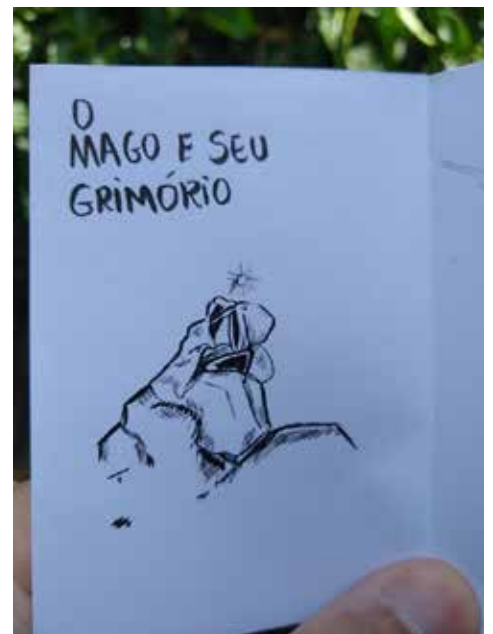 O
MAGO E SEU
GRIMÓRIO